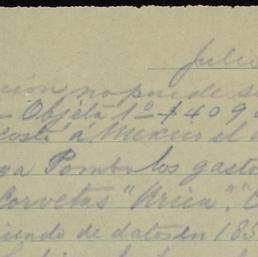 Julio
ción no puede s
- Objeta 1º - 1409
costó á Mexico el
ya Pombo los gasto
Corvetas "Arica", "
iendo de datos en 185